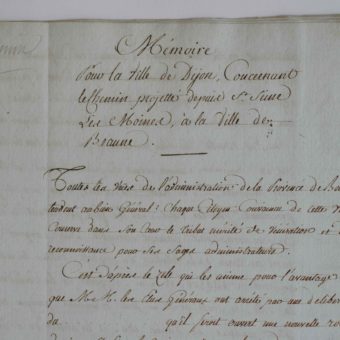 Mémoire
Pour la Ville de Dijon, Concernant
le Chemin projetté depuis St. Seine
Les Moines, à la Ville de
Beaune.
Toutes les vues de l'administration de la Province de Bo
tendent au bien Général: Chaque Citoyen Convaincu de cette v
Conserve dans son Cœur le tribut mérité de vénération et de
reconnoissance pour ses Sages administrateurs.
C'est d'après le zèle qui les anime pour l'avantage
que MM. les Elus Généraux ont arrêté par une deliber
du qu'il seroit ouvert une nouvelle ro